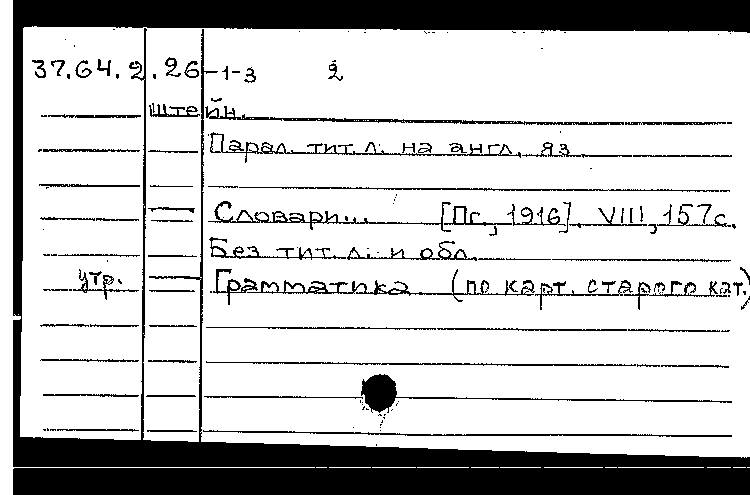 37.64.2.26-1-3 2
штейн.
Парал. тит. л. на англ. яз
— Словари... [Пг., 1916]. VIII, 157с.
Без тит. л. и обл.
утр. — Грамматика. (по карт. старого кат.)